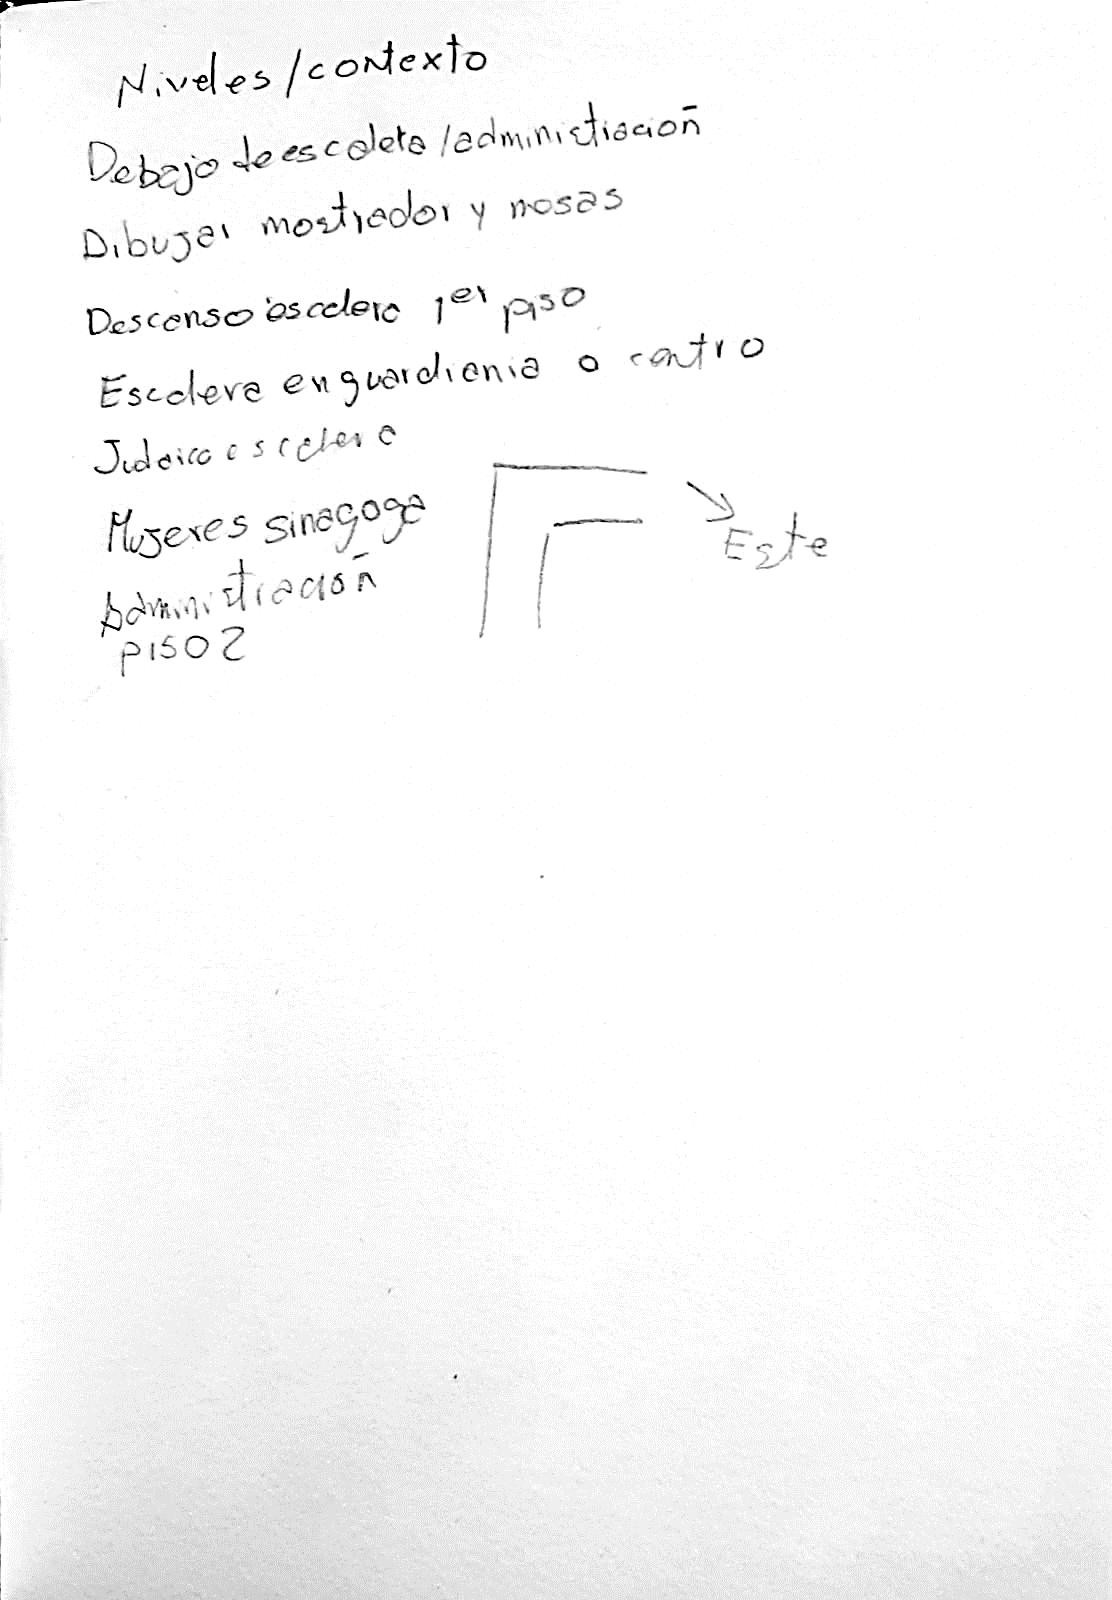 Niveles / contexto
Debajo de escalera / administración
Dibujar mostrador y mesas
Descenso escalera 1er piso
Escalera en guardiania o centro
Judaica escalera
Mujeres sinagoga
Administración
piso 2
Este